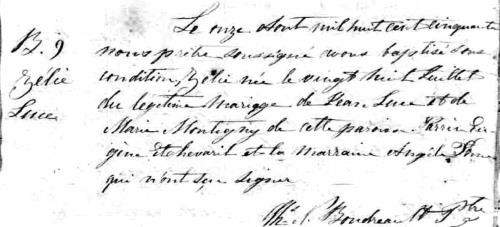 Le onze Aout mil huit cent cinquante
B. 9 nous prêtre soussigné avons baptisé sous
Zélie condition, Zélie née le vingt huit Juillet
Luce du légitime mariage de Jean Luce et de
Marie Montigny de cette paroisse Parrain
Etchevaril et la marraine Angèle
qui n'ont su signer
Boudreault Ptre